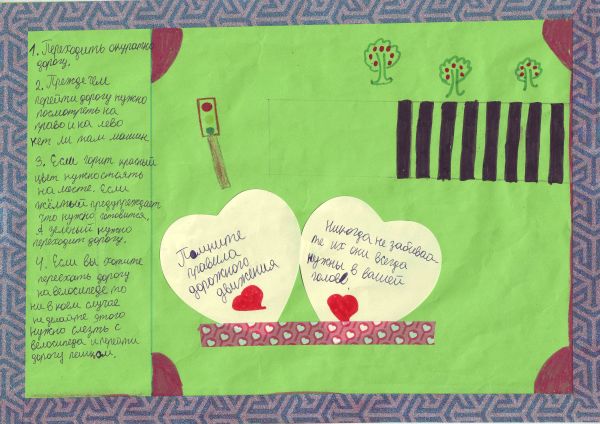 1. Переходить окуратно
дорогу.
2. Прежде чем
перейти дорогу нужно
посмотреть на
право и на лево
нет ли там машин
3. Если горит красный
цвет нужно стоять
на месте. Если
жёлтый предупреждает
что нужно готовится.
А зелёный нужно
переходить дорогу.
4. Если вы хотите
переехать дорогу
на велосипеде то
ни в коем случае
не делайте этого
нужно слезть с
велосипеда и перейти
дорогу пешком.
Помните
правила
дорожного
движения
Никогда не забывай
те их они всегда
нужны в вашей
голове!